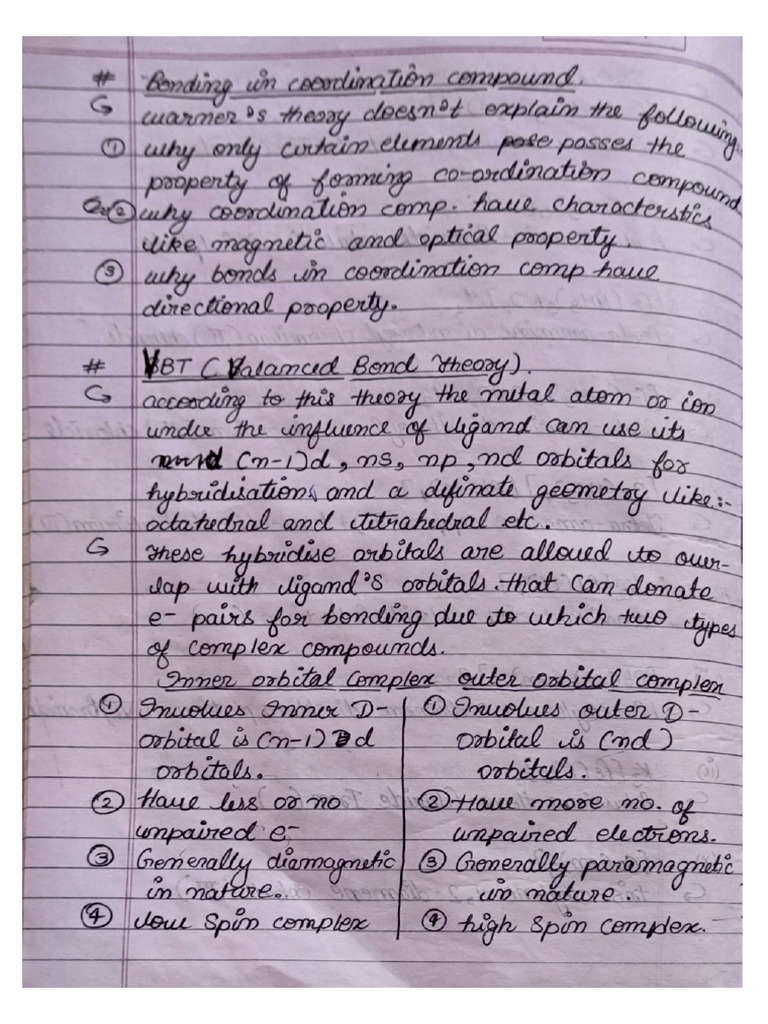 # Bonding in coordination compound.
↪ warmer's theory doesn't explain the following
① why only certain elements pose posses the
property of forming co-ordination compound
Q② why coordination comp. have characterstics
like magnetic and optical property.
③ why bonds in coordination comp have
directional property.
# VBT ( Valanced Bond theory).
↪ according to this theory the metal atom or ion
under the influence of ligand can use its
(n-1)d, ns, np, nd orbitals for
hybridisation, and a definate geometry like:-
octahedral and titrahedral etc.
↪ These hybridise orbitals are allowed to over-
lap with ligand's orbitals. that can donate
e- pairs for bonding due to which two types
of complex compounds.
Inner orbital complex outer orbital complex
① Involves Inner D- ① Involves outer D-
orbital is (n-1) d orbital is (nd)
orbitals. orbitals.
② Have less or no ② Have more no. of
unpaired e- unpaired electrons.
③ Generally diamagnetic ③ Generally paramagnetic
in nature. in nature.
④ low spin complex ④ high spin complex.